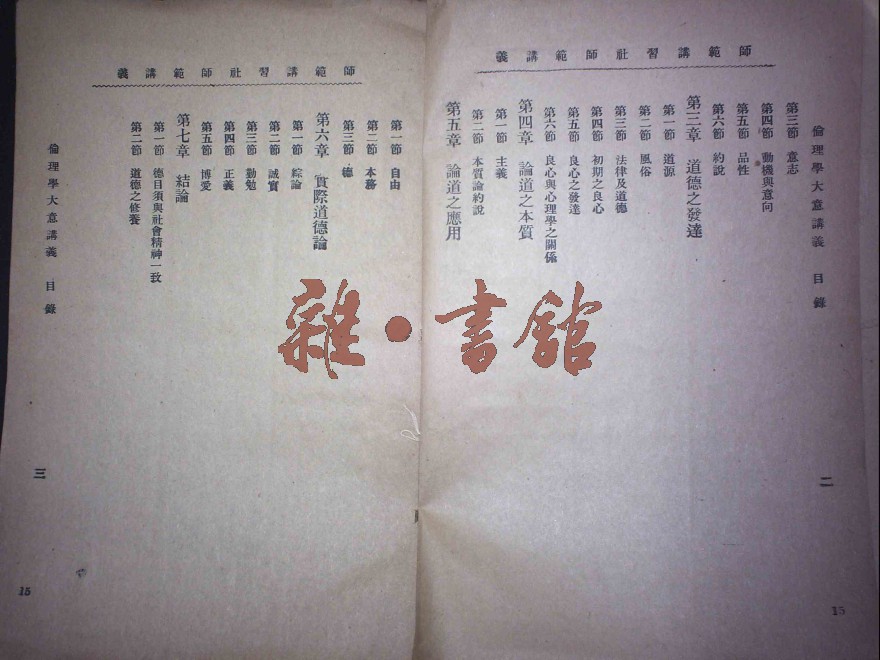 師範講習社師範講義
倫理學大意講義 目錄
第三節 意志
第四節 動機與意向
第五節 品性
第六節 約說
第三章 道德之發達
第一節 道源
第二節 風俗
第三節 法律及道德
第四節 初期之良心
第五節 良心之發達
第六節 良心與心理學之關係
第四章 論道之本質
第一節 主義
第二節 本質論約說
第五章 論道之應用
二
15
師範講習社師範講義
第一節 自由
第二節 本務
第三節 德
第六章 實際道德論
第一節 綜論
第二節 誠實
第三節 勤勉
第四節 正義
第五節 博愛
第七章 結論
第一節 德目須與社會精神一致
第二節 道德之修養
倫理學大意講義 目錄
三
15
雜·書館